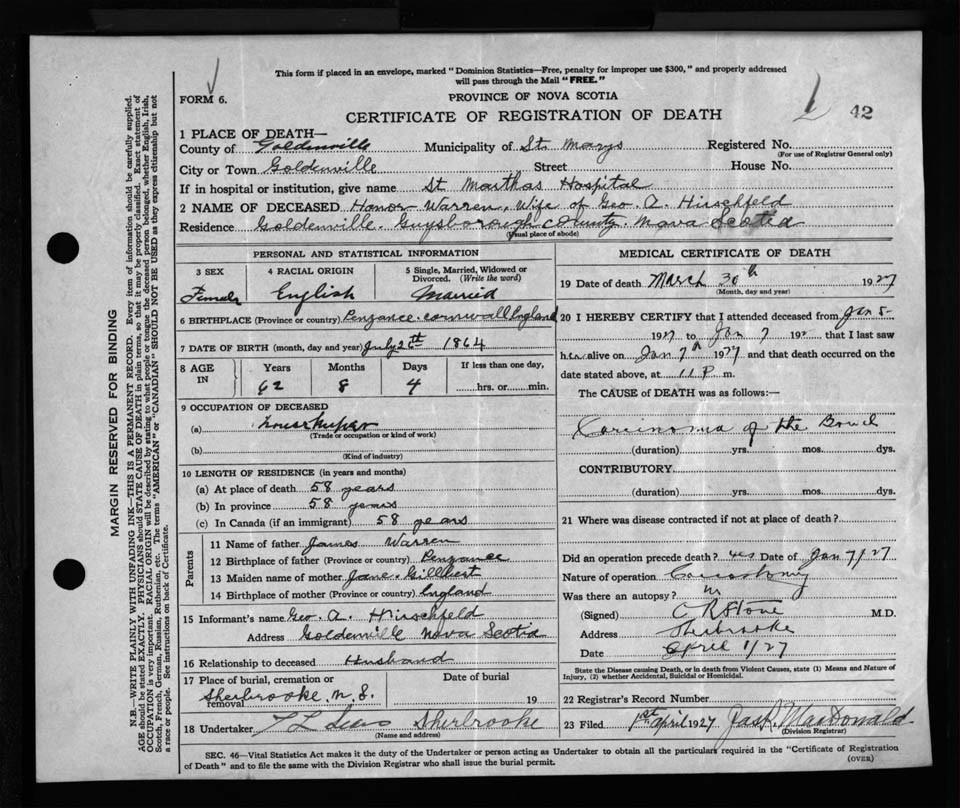 This form if placed in an envelope, marked "Dominion Statistics—Free, penalty for improper use $300," and properly addressed
will pass through the Mail "FREE."
FORM 6.
PROVINCE OF NOVA SCOTIA
42
CERTIFICATE OF REGISTRATION OF DEATH
1 PLACE OF DEATH—
County of Goldenville Municipality of St. Marys Registered No.
(For use of Registrar General only)
City or Town Goldenville Street House No.
If in hospital or institution, give name St Marthas Hospital
2 NAME OF DECEASED Honor Warren, Wife of Geo. A. Hirschfeld
Residence Goldenville. Guysborough County. Nova Scotia
(Usual place of abode)
PERSONAL AND STATISTICAL INFORMATION
3 SEX 4 RACIAL ORIGIN 5 Single, Married, Widowed or
Divorced. (Write the word)
Female English Married
6 BIRTHPLACE (Province or country) Penzance. cornwall England
7 DATE OF BIRTH (month, day and year) July 26th 1864
8 AGE IN Years Months Days If less than one day,
62 8 4 hrs. or min.
9 OCCUPATION OF DECEASED
(a) Housekeeper
(Trade or occupation or kind of work)
(b)
(Kind of industry)
10 LENGTH OF RESIDENCE (in years and months)
(a) At place of death 58 years
(b) In province 58 years
(c) In Canada (if an immigrant) 58 years
Parents
11 Name of father James Warren
12 Birthplace of father (Province or country) Penzance
13 Maiden name of mother Jane. Gillbert
14 Birthplace of mother (Province or country) England
15 Informant's name Geo. A. Hirschfeld
Address Goldenville Nova Scotia
16 Relationship to deceased Husband
17 Place of burial, cremation or removal Date of burial
Sherbrooke N.S. 19
18 Undertaker Sherbrooke
(Name and address)
MEDICAL CERTIFICATE OF DEATH
19 Date of death March 30th 1927
(Month, day and year)
20 I HEREBY CERTIFY that I attended deceased from Jan 5-
1927 to Jan 7 192 that I last saw
her alive on Jan 7th 1927 and that death occurred on the
date stated above, at 11 P m.
The CAUSE of DEATH was as follows:—
Carcinoma of the Bowel
(duration) yrs. mos. dys.
CONTRIBUTORY
(duration) yrs. mos. dys.
21 Where was disease contracted if not at place of death?
Did an operation precede death? yes Date of Jan 7/27
Nature of operation
Was there an autopsy?
(Signed) C R Stone M.D.
Address Sherbrooke
Date April 1/27
State the Disease causing Death, or in death from Violent Causes, state (1) Means and Nature of
Injury, (2) whether Accidental, Suicidal or Homicidal.
22 Registrar's Record Number
23 Filed 1st april 1927 Jas. A. MacDonald
(Division Registrar)
SEC. 46—Vital Statistics Act makes it the duty of the Undertaker or person acting as Undertaker to obtain all the particulars required in the "Certificate of Registration
of Death" and to file the same with the Division Registrar who shall issue the burial permit.
(OVER)
MARGIN RESERVED FOR BINDING
N.B.—WRITE PLAINLY WITH UNFADING INK—THIS IS A PERMANENT RECORD. Every item of information should be carefully supplied.
AGE should be stated EXACTLY. PHYSICIANS should STATE CAUSE OF DEATH in plain terms, so that it may be properly classified. Exact statement of
OCCUPATION is very important. RACIAL ORIGIN will be described by stating to what people or tongue the deceased person belonged, whether English, Irish,
Scotch, French, German, Russian, Ruthenian, etc. The terms "AMERICAN" or "CANADIAN" SHOULD NOT BE USED as they express citizenship but not
a race or people. See instructions on back of Certificate.